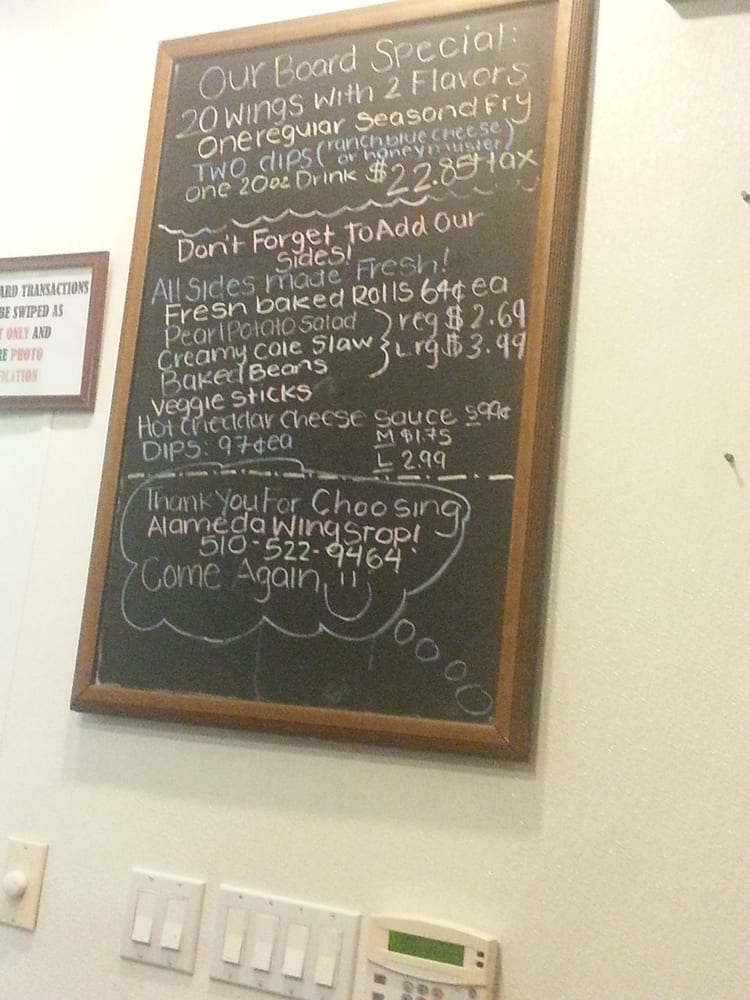 Our Board Special:
20 Wings With 2 Flavors
One regular Seasond Fry
TWO dips (ranch, blue cheese)
or honey muster)
one 20oz Drink $22.85+tax
Don't Forget To Add Our
Sides!
All Sides made Fresh!
Fresh baked Rolls 64¢ ea
Pearl Potato Salad
reg $2.69
Creamy Cole Slaw
Lrg $3.99
Baked Beans
Veggie Sticks
Hot Cheddar Cheese Sauce S 99¢
M $1.75
DIPS: 97¢ ea
L 2.99
Thank You For Choosing
Alameda Wingstop!
510-522-9464
Come Again
ARD TRANSACTIONS
BE SWIPED AS
T ONLY AND
RE PHOTO
FICATION